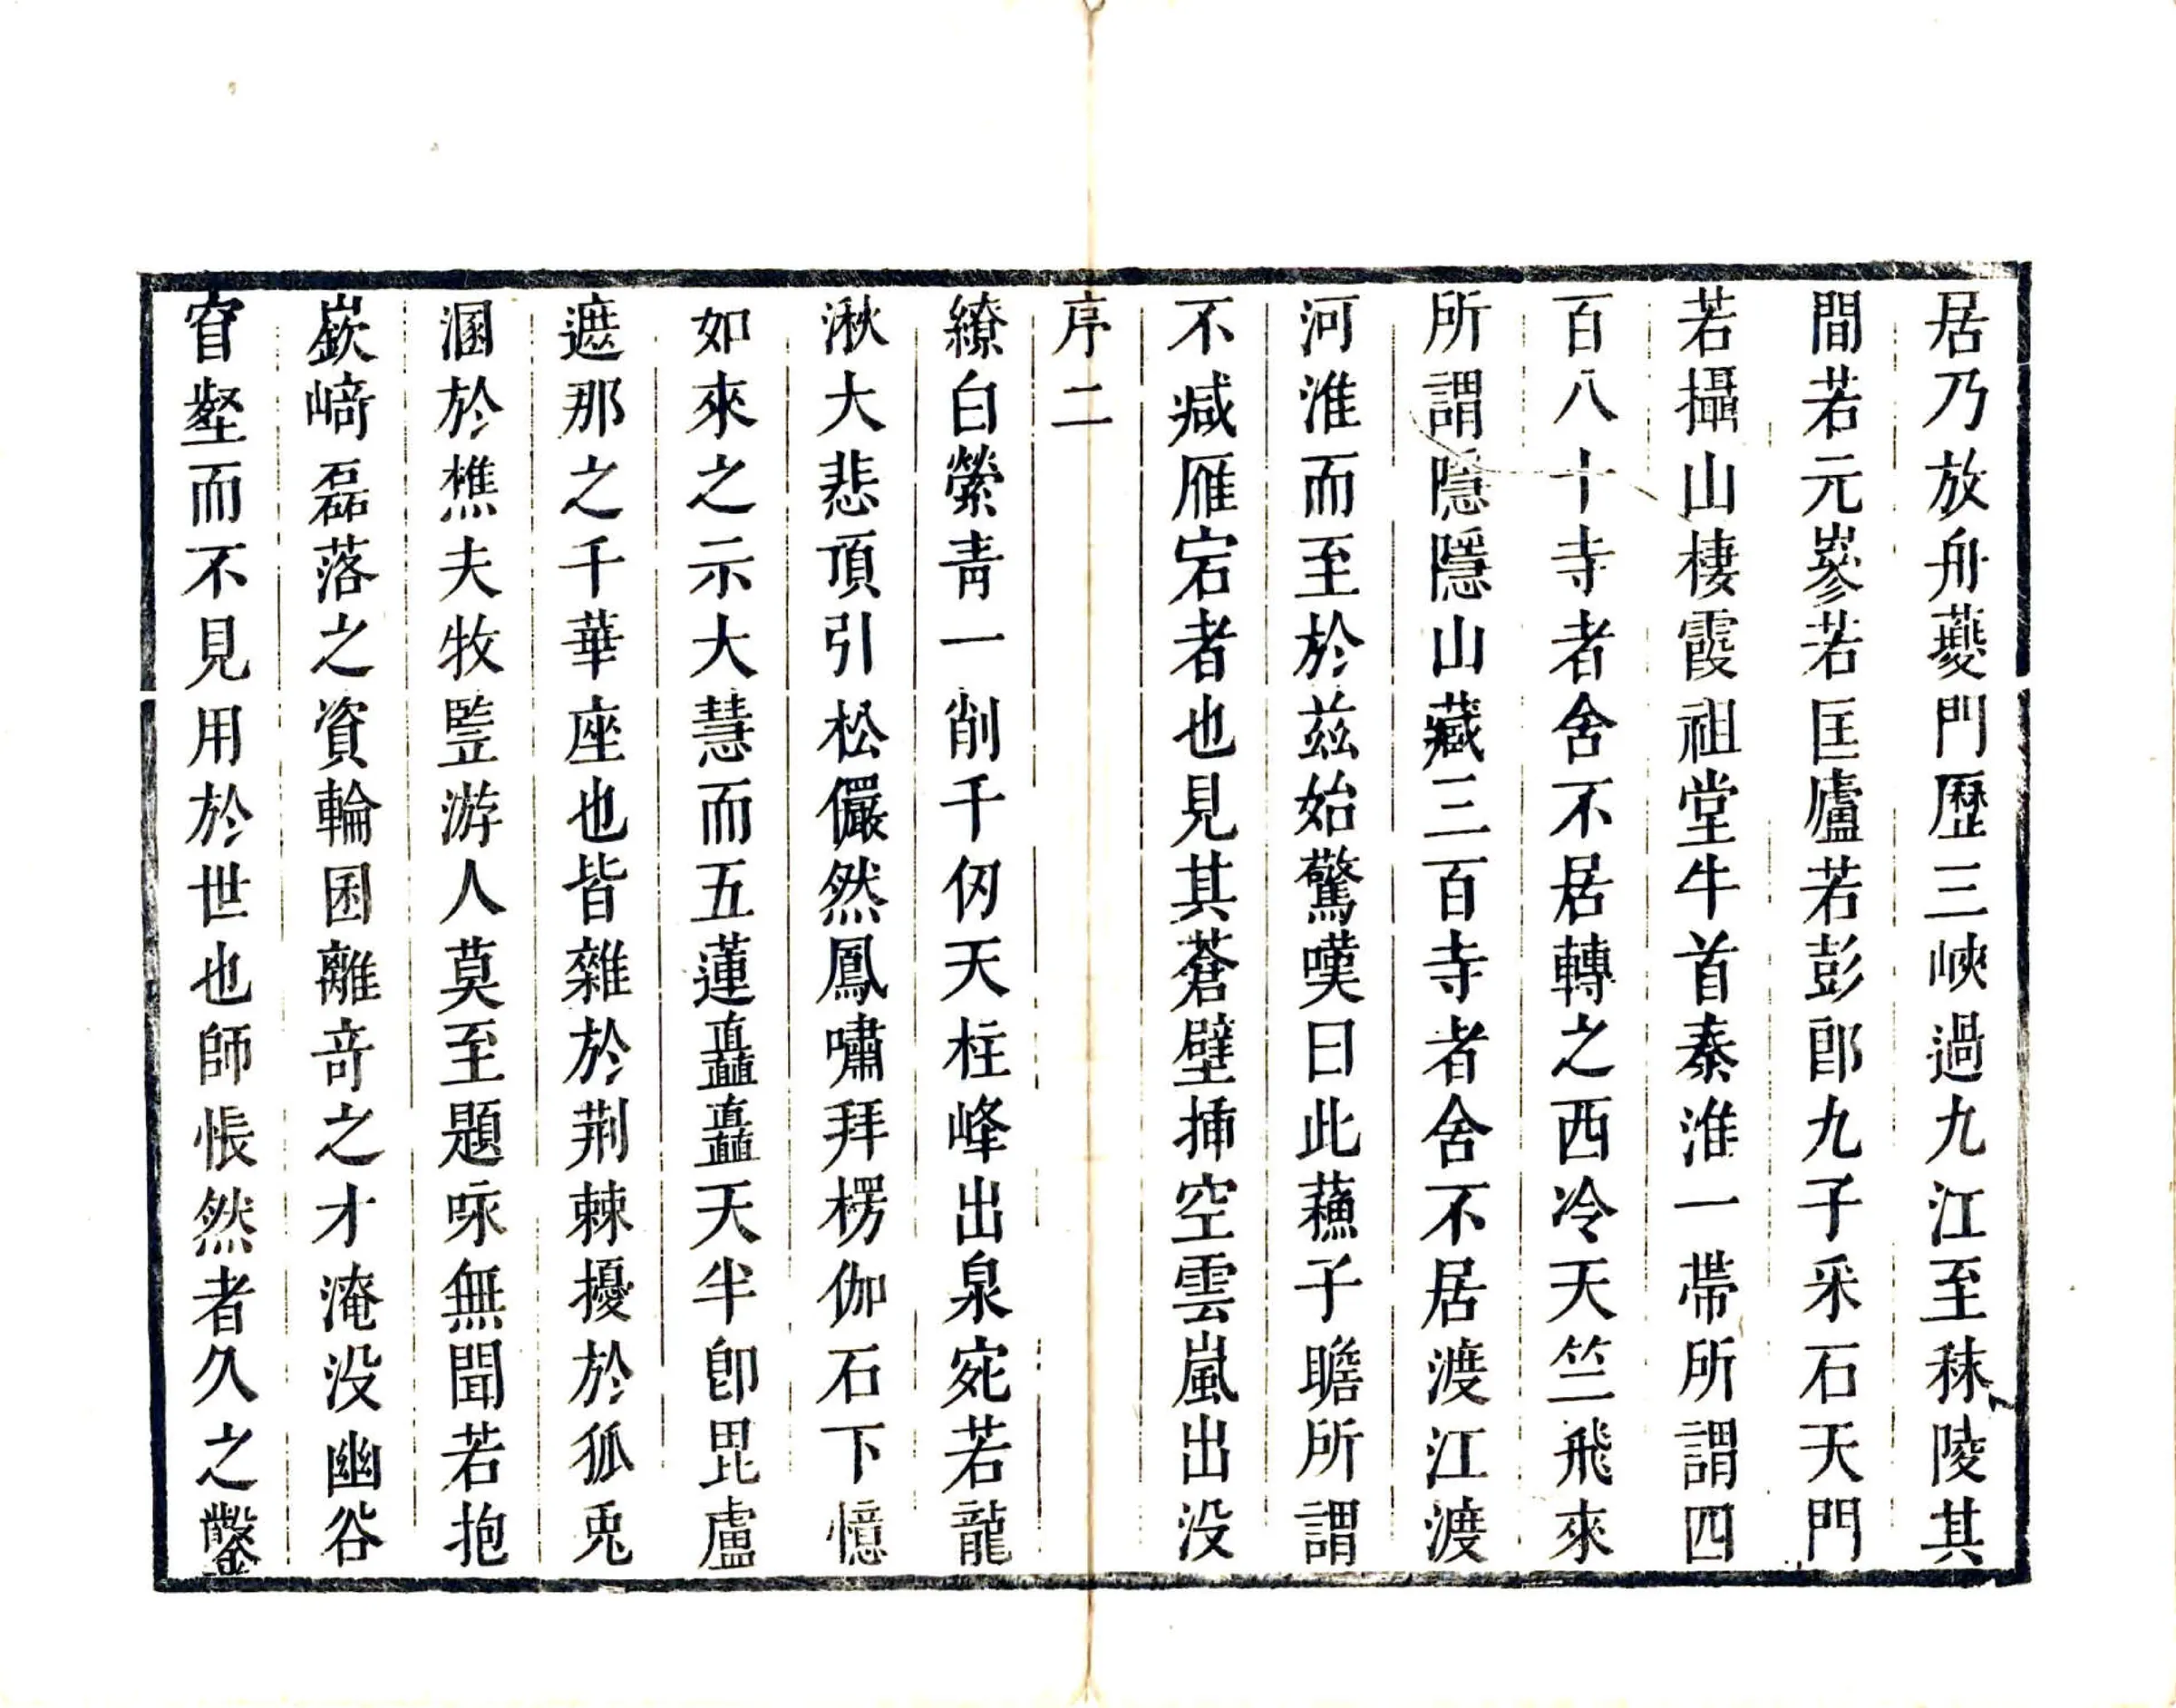 居乃放舟夔門歷三峽過九江至秣陵其
間若元嵾若匡廬若彭郎九子采石天門
若攝山棲霞祖堂牛首秦淮一帶所謂四
百八十寺者舍不居轉之西冷天竺飛來
所謂隱隱山藏三百寺者舍不居渡江渡
河淮而至於茲始驚嘆曰此蘓子瞻所謂
不減雁宕者也見其蒼壁揷空雲嵐出没
序二
繚白縈青一削千仞天柱峰出泉宛若龍
湫大悲頂引松儼然鳳嘯拜楞伽石下憶
如來之示大慧而五蓮矗矗天半卽毘盧
遮那之千華座也皆雜於荆棘擾於狐兎
溷於樵夫牧豎游人莫至題咏無聞若抱
嶔﨑磊落之資輪囷離竒之才淹没幽谷
窅壑而不見用於世也師悵然者久之鑿